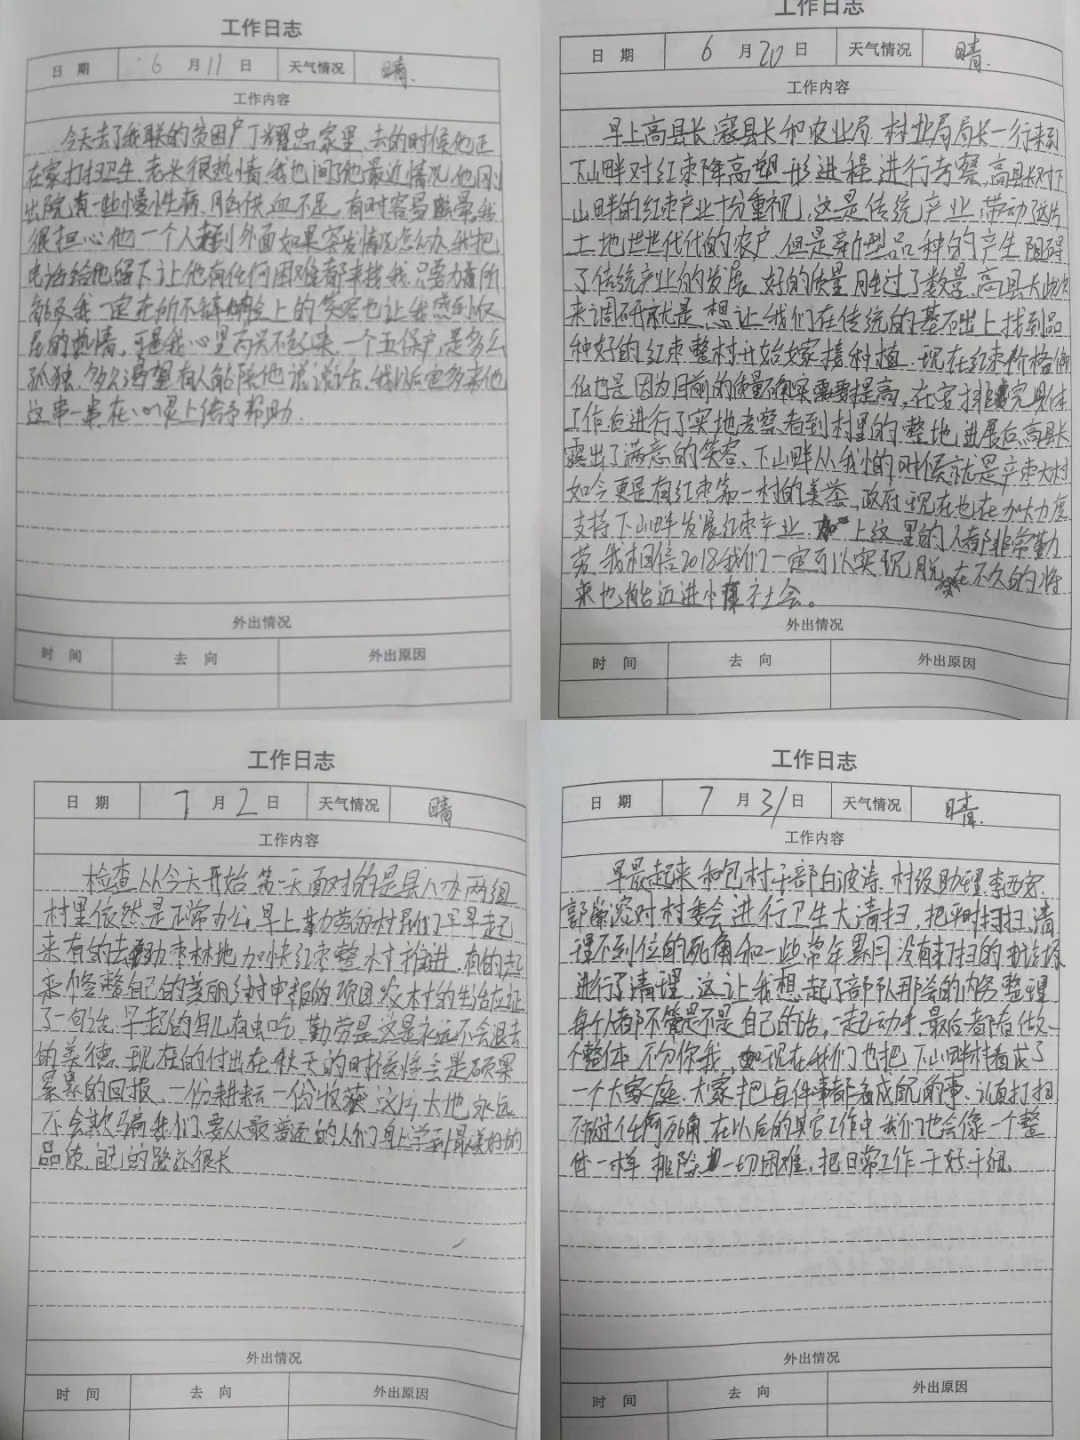 工作日志
日 期 6 月 11 日 天气情况 晴.
工作内容
今天去了我联的贫困户丁耀忠家里.去的时候他正
在家打扫卫生.老头很热情.我也问了他最近情况.他刚
出院,有一些慢性病.脑供血不足,有时容易晕.我
很担心他一个人在外面如果突发情况怎么办.我把
电话给他留下让他有任何困难都来找我.只要力所
能及我一定在所不辞.脸上的笑容也让我感到
的热情,可是我心里高兴不起来.一个五保户,是多么
孤独,多么渴望有人能陪他说说话.我以后也多来他
这串一串在心灵上给予帮助.
外出情况
时 间 去 向 外出原因
工作日志
日 期 6 月 20 日 天气情况 晴.
工作内容
早上高县长.县长和农业局.林业局局长一行来到
下山畔对红枣降高塑形进程进行考察.高县长对下
山畔的红枣产业十分重视,这是传统产业,带动了这片
土地世世代代的农户.但是新型品种的产生阻碍
了传统产业的发展.好的质量胜过了数量.高县长此次
来调研就是想让我们在传统的基础上找到品
种好的红枣整村开始嫁接种植.现在红枣价格
低也是因为目前的质量需要提高,在安排完具体
工作后进行了实地考察.看到村里的整地进展后,高县长
露出了满意的笑容、下山畔从我小的时候就是枣大村
如今更是有红枣第一村的美誉,政府现在也在加大力度
支持下山畔发展红枣产业.加上这里的人都非常勤
劳.我相信2018我们一定可以实现脱.在不久的将
来也能迈进小康社会。
外出情况
时 间 去 向 外出原因
工作日志
日 期 7 月 2 日 天气情况 晴
工作内容
检查从今天开始.第一天面对的是县人办两组
村里依然是正常办公.早上勤劳的村民们早早起
来有的去枣林地加快红枣整村推进.有的起
来修整自己的美丽乡村申报的项目.农村的生活应证
了一句话.早起的鸟儿有虫吃.勤劳是这是永远不会退去
的美德.现在的付出在秋天的时候将会是硕果
累累的回报.一份耕耘一份收获.这片大地永远
不会欺骗我们.要从最普通的人们身上学到最美好的
品质.自己的路还很长
外出情况
时 间 去 向 外出原因
工作日志
日 期 7 月 31 日 天气情况 晴.
工作内容
早晨起来和包村干部白波涛.村级助理李西安.
郭对村委会进行卫生大清扫.把平时扫扫清
理不到位的死角和一些常年累月没有打扫的垃圾
进行了清理.这让我想起了部队那会的内务整理
每个人都不管是不是自己的活,一起动手.最后都看做一
个整体.不分你我,如现在我们也把下山畔村看成了
一个大家庭.大家把每件事都看成自己的事,认真打扫
不放过任何死角.在以后的其它工作中我们也会像一个整
体一样.排除一切困难,把日常工作干好干细.
外出情况
时 间 去 向 外出原因